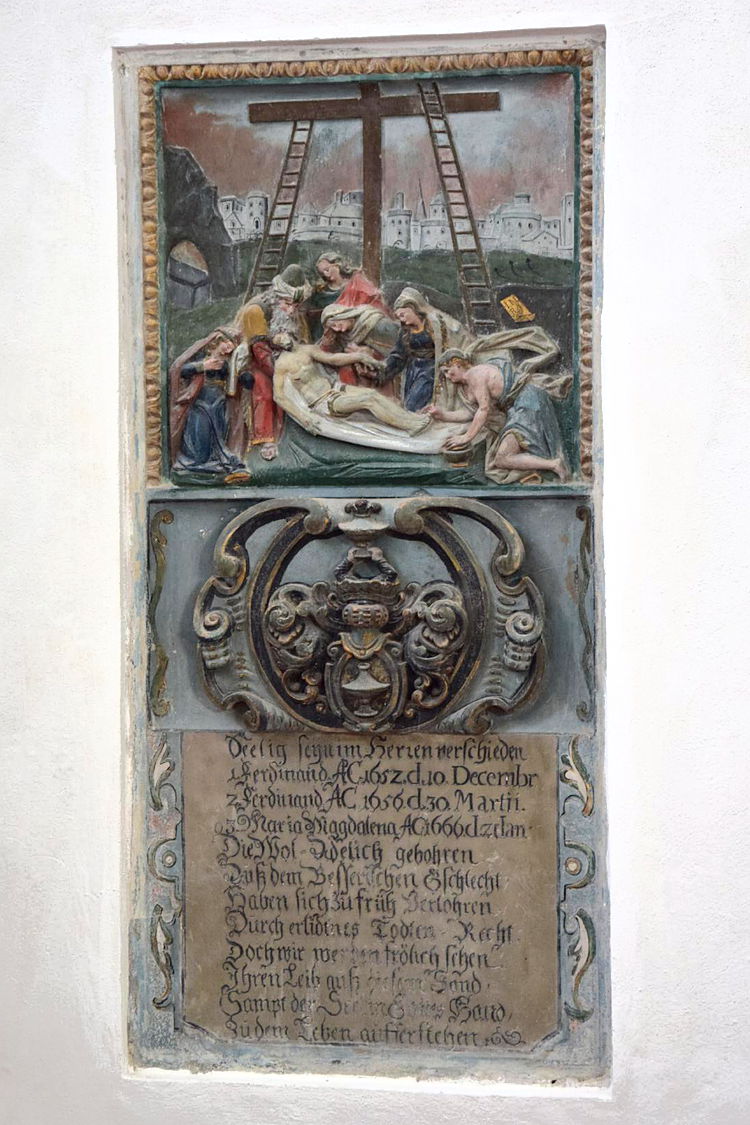 Seelig seyn im Herren verschieden
1 Ferdinand AC 1652. d. 10. Decembr
2 Ferdinand AC 1656 d. 30. Martii.
3 Maria Magdalena AC 1666. d 2 Jan
Die Wol-Adelich gebohren
Auß dem Besserischen Gschlecht,
Haben sich zu früh Verlohren
Durch erlidtnes Todten-Recht.
Doch wir werden frölich sehen
Ihren Leib auß disem Sand,
Sampt der Seel in Hand,
Zu dem Leben aufferstehen.